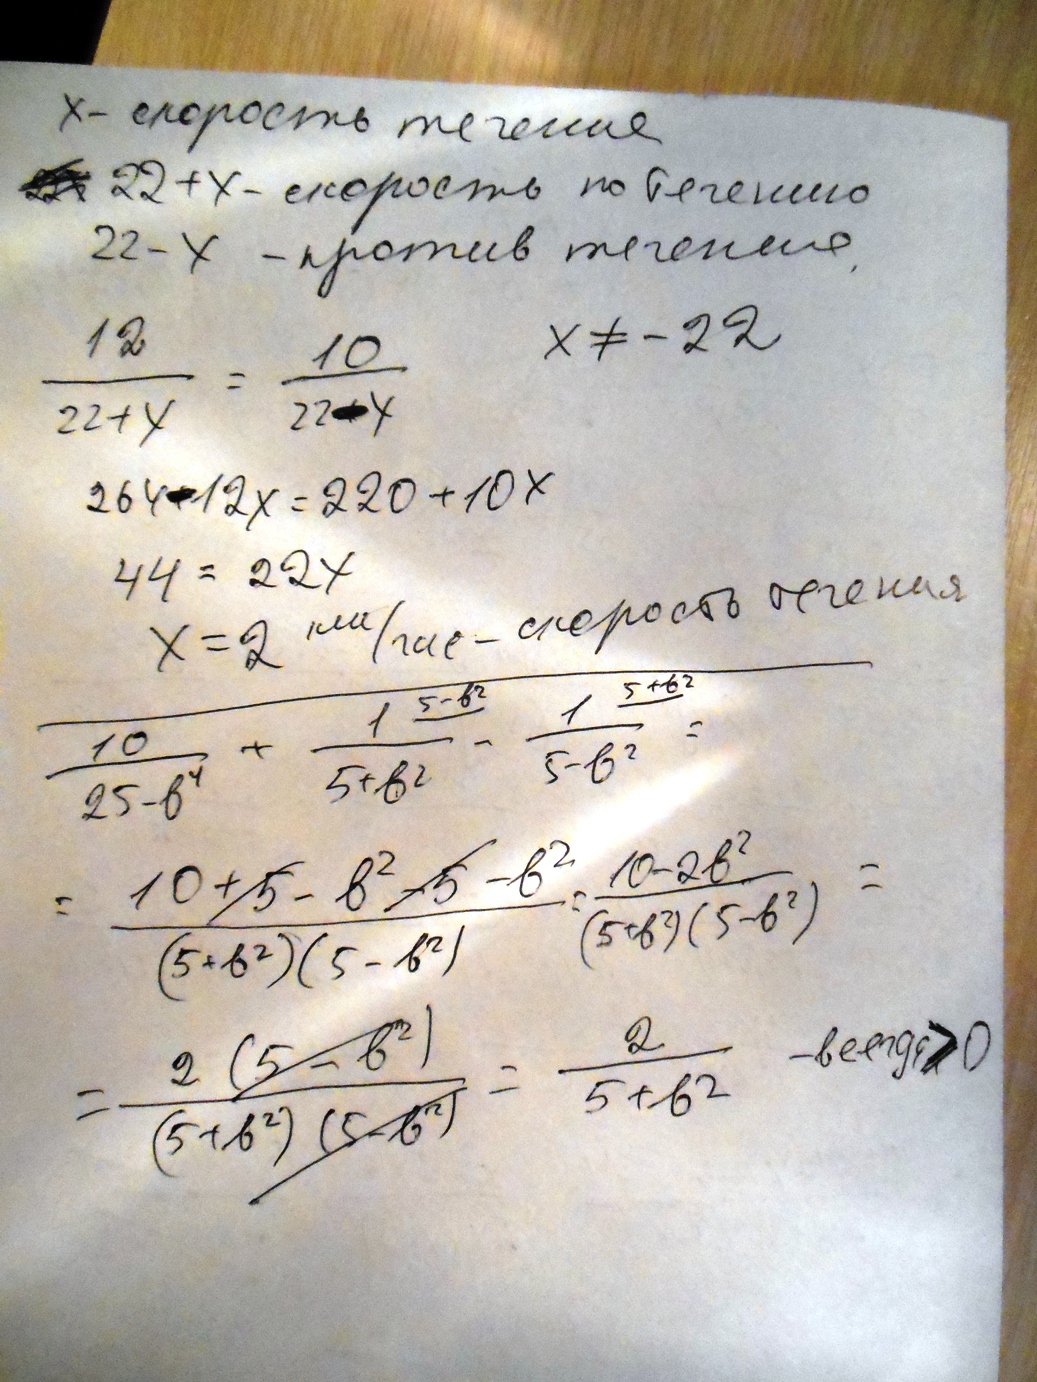 x - скорость течения
22+x - скорость по течению
22-x - против течения,
12/(22+x) = 10/(22-x)   x ≠ -22
264-12x=220+10x
44 = 22x
x=2 км/час - скорость течения
10/(25-b⁴) + 1/(5+b²) (5-b²) - 1/(5-b²) (5+b²) =
= (10+5-b²-5-b²)/((5+b²)(5-b²)) = (10-2b²)/((5+b²)(5-b²)) =
= 2(5-b²)/((5+b²)(5-b²)) = 2/(5+b²) - всегда >0